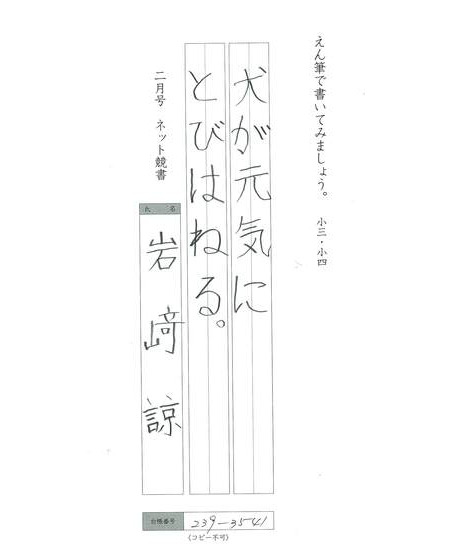 えん筆で書いてみましょう。 小三・小四
犬が元気に
とびはねる。
二月号 ネット競書
氏名
岩﨑諒
台帳番号 239-3541
(コピー不可)